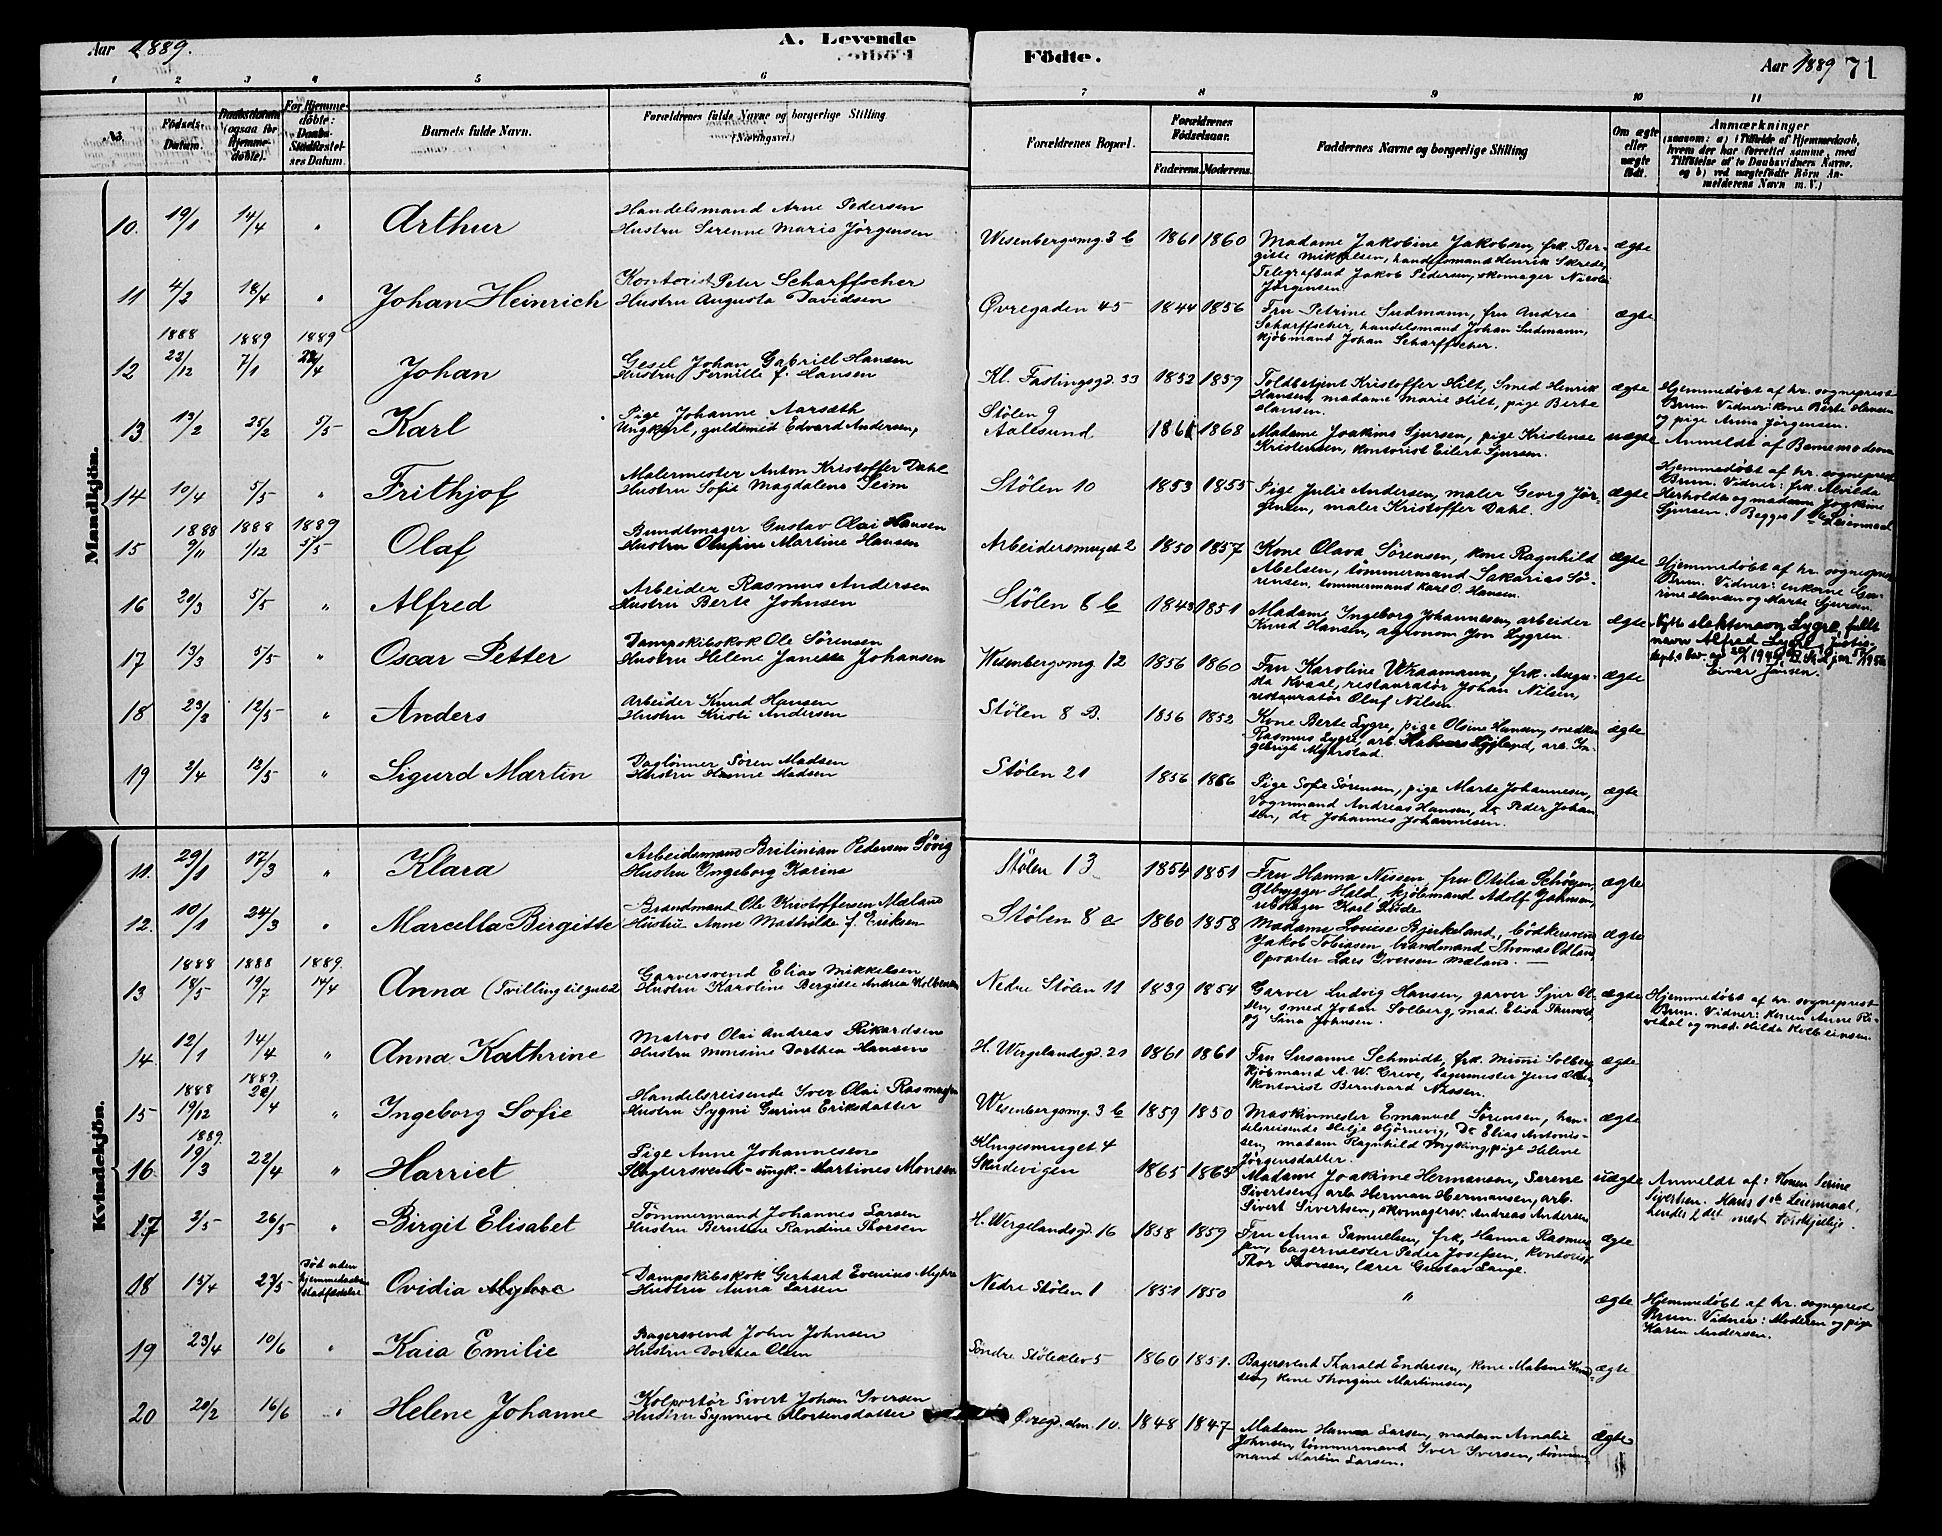 Aar 1889.
A. Levende
Födte.
Aar 1889 71
1 2 3 4 5 6 7 8 9 10 11
No.
Födsels-Datum.
Daabsdatum (ogsaa for Hjemmedöbte).
For Hjemmedöbte: Daabs-Stadfæstelses Datum.
Barnets fulde Navn.
Forældrenes fulde Navne og borgerlige Stilling (Næringsvei.)
Forældrenes Bopæl.
Forældrenes Födselsaar.
Faderens. Moderens.
Faddernes Navne og borgerlige Stilling
Om ægte eller uægte födt.
Anmærkninger
(saasom: a) i Tilfælde af Hjemmedaab, hvem der har forrettet samme, med Tilföielse af to Daabsvidners Navne, og b) ved uægtefödte Börn Anmelderens Navn m. V.)
Mandkjön.
10. 19/1 14/4 " Arthur
Handelsmand Arne Pedersen
Hustru Serenne Maria Jörgensen
Wesenbergsmg. 3 b 1861 1860
Madame Jakobine Jakobsen, frk. Ber-
gitte Mikkelsen, handelsmand Henrik Skrede,
Telegrafbud Jakob Pedersen, skomager Nicolai
Jörgensen
ægte
11 4/2 18/4 " Johan Heinrich
Kontorist Peter Scharffscher
Hustru Augusta Davidsen
Øvregaden 45 1844 1856
Fru Petrine Sudmann, fru Andrea
Scharffscher, handelsmand Johan Sudmann,
kjöbmand Johan Scharffscher.
ægte
1888 1889 1889
12 22/12 7/1 22/4 Johan
Gesel Johan Gabriel Hansen
Hustru Pernille f. Hansen
Kl. Fastingsgd. 33 1852 1859
Toldbetjent Kristoffer Hilt, Smed Henrik
Hansen, madame Marie Hilt, pige Berte
Hansen.
ægte
Hjemmedøbt af hr. sogneprest
Brun. Vidner: kone Berte Hansen
og pige Anna Jörgensen.
13 13/2 25/2 5/5 Karl
Pige Johanne Aarsæth
Ungkarl, guldsmed Edvard Andersen,
Stölen 9
Aalesund 1861 1868
Madame Joakime Sjursen, pige Kristense
Kristensen, kontorist Eilert Sjursen.
uægte
Anmeldt af Barnemoderen
Hjemmedöbt af hr. sogneprest
Brun. Vidner: frk. Alvilda
Herholdt og madam Joakime
Sjursen. Begges 1ste Leiermaal
14 10/4 5/5 " Frithjof
Malermester Anton Kristoffer Dahl
Hustru Sofie Magdalena Seim
Stölen 10 1853 1855
Pige Julie Andersen, maler Georg Jör-
gensen, maler Kristoffer Dahl.
ægte
1888 1888 1889
15 9/11 1/12 5/5 Olaf
Bundtmager Gustav Olai Hansen
Hustru Olufine Martine Hansen
Arbeidersmuget 2 1850 1857
Kone Olava Sörensen, kone Ragnhild
Abelsen, tömmermand Sakarias Sö-
rensen, tömmermand Karl O. Hansen.
ægte
Hjemmedöbt af hr. sogneprest
Brun. Vidner: enkerne
Hansen og Marte Sjursen.
16 20/3 5/5 " Alfred
Arbeider Rasmus Andersen
Hustru Berte Johnsen
Stölen 8 b 1843 1851
Madame Ingeborg Johannesen, arbeider
Knud Hansen, agronom Jon Lygren.
ægte
Nytt slektsnavn Lygre, fullt
navn Alfred Lygre,
17 13/3 5/5 " Oscar Petter
Dampskibskok Ole Sörensen
Hustru Helene Janette Johansen
Wesenbergsmg 12 1856 1860
Fru Karoline Wraamann, frk. Augu-
sta Kvaal, restauratör Johan Nilsen,
restauratör Oluf Nilsen
ægte
18 23/3 12/5 " Anders
Arbeider Knud Hansen
Hustru Kristi Andersen
Stölen 8 B. 1856 1852
Kone Berte Lygre, pige Olsine Hansen, snedker
Rasmus Lygre, arb. arb. In-
gebrigt Myrstad.
ægte
19 2/4 12/5 " Sigurd Martin
Daglönner Sören Madsen
Hustru Hanne Madsen
Stölen 21 1856 1866
Pige Sofie Sörensen, pige Marte Johannesen,
Vognmand Andreas Hansen, do Peder Johan-
sen, do Johannes Johannesen.
ægte
Kvindekjön.
11. 29/1 17/3 " Klara
Arbeidsmand Pedersen Søvig
Hustru Ingeborg Karine
Stölen 13 1854 1851
Fru Hanna Nissen, fru Otilia
Hald, kjöbmand Adolf Johnsen,
Karl Löde
ægte
12. 10/1 24/3 " Marcella Birgitte
Brandmand Ole Kristoffersen Mæland
Hustru Anne Mathilde f. Eriksen
Stölen 8 a 1860 1858
Madame Louise Bjerkeland, bödkersvend
Jakob Tobiassen, brandmand Thomas Odland,
Opvarter Lars Iversen Mæland.
ægte
1888 1888 1889.
13 18/5 19/7 14/4 Anna (Tvilling
Garversvend Elias Mikkelsen
Hustru Karoline Bergitte Andrea Kolbensen
Nedre Stölen 11 1839 1854
Garver Ludvig Hansen, garver Sjur Ol-
sen, smed Johan Solberg, mad. Elisa
og Sina Johnsen.
ægte
Hjemmedöbt af hr. sogneprest
Brun. Vidner: konen Anne
og mad. Hilda Kolbeinsen.
14. 12/1 14/4 " Anna Kathrine
Matros Olai Andreas Rikardsen
Hustru Monsine Dorthea Hansen
H. Wergelandsgd. 21 1861 1861
Fru Susanne Schmidt, frk. Mimi Solberg
kjöbmand A. W. Greve, bagermester Jens Olsen
kontorist Bernhard Nissen.
ægte
1888 1889.
15 19/12 22/4 " Ingeborg Sofie
Handelsreisende Iver Olai Rasmussen
Hustru Sygni Gurine Eriksdatter
Wesenbergsmg. 3 b 1859 1850
Maskinmester Emanuel Sörensen, han-
delsreisende Helje Hjörnevig, Do Elias Antonis-
sen, madam Ragnhild Myking, pige Helene
Jörgensdatter.
ægte
1889.
16. 19/3 22/4 " Harriet
Pige Anne Johannesen
Slagtersvend - ungk. - Martines Monsen
Klingesmuget 4
Skudevigen 1865 1865
Madame Joakime Hermansen, Serene
Sivertsen, arb. Herman Hermansen, arb.
Sivert Sivertsen, skomagersv. Andreas Andersen
uægte
Anmeldt af: Konen Serine
Sivertsen. Hans 1ste Leiermaal,
hendes 2det med Forskjellige.
17 3/5 26/5 " Birgit Elisabet
Tömmermand Johannes Larsen
Hustru Berntine Randine Thorsen
H. Wergelandsgd. 16 1858 1859
Fru Anna Samuelsen, frk, Hanna Rasmus-
sen, bagermester Peder Josefsen, Kontorist
Thor Thorsen, lærer Gustav Lange.
ægte
18 15/4 27/5 Död uden hjemmedaabens stadfæstelse Ovidia Myhre
Dampskibskok Gerhard Evenius Myhre
Hustru Anna Larsen
Nedre Stölen 1 1851 1850 "
ægte
Hjemmedöbt af hr. sogneprest
Brun. Vidner: Moderen og pige
Karen Andersen.
19 23/4 10/6 " Kaia Emilie
Bagersvend John Johnsen
Hustru Dorthea Olsen
Söndre Stöleklev 5 1860 1851.
Bagersvend Tharald Endresen, kone Malene Knud-
sen, kone Thorgine Martinesen,
ægte
20 20/2 16/6 " Helene Johanne
Kolportör Sivert Johan Iversen
Hustru Synneve Mortensdatter
Øvregd. dm. 10. 1848 1847
Madam Hanna Larsen, madam Amalie
Johnsen, tömmermand Iver Iversen, tömmer-
mand Martin Larsen.
ægte